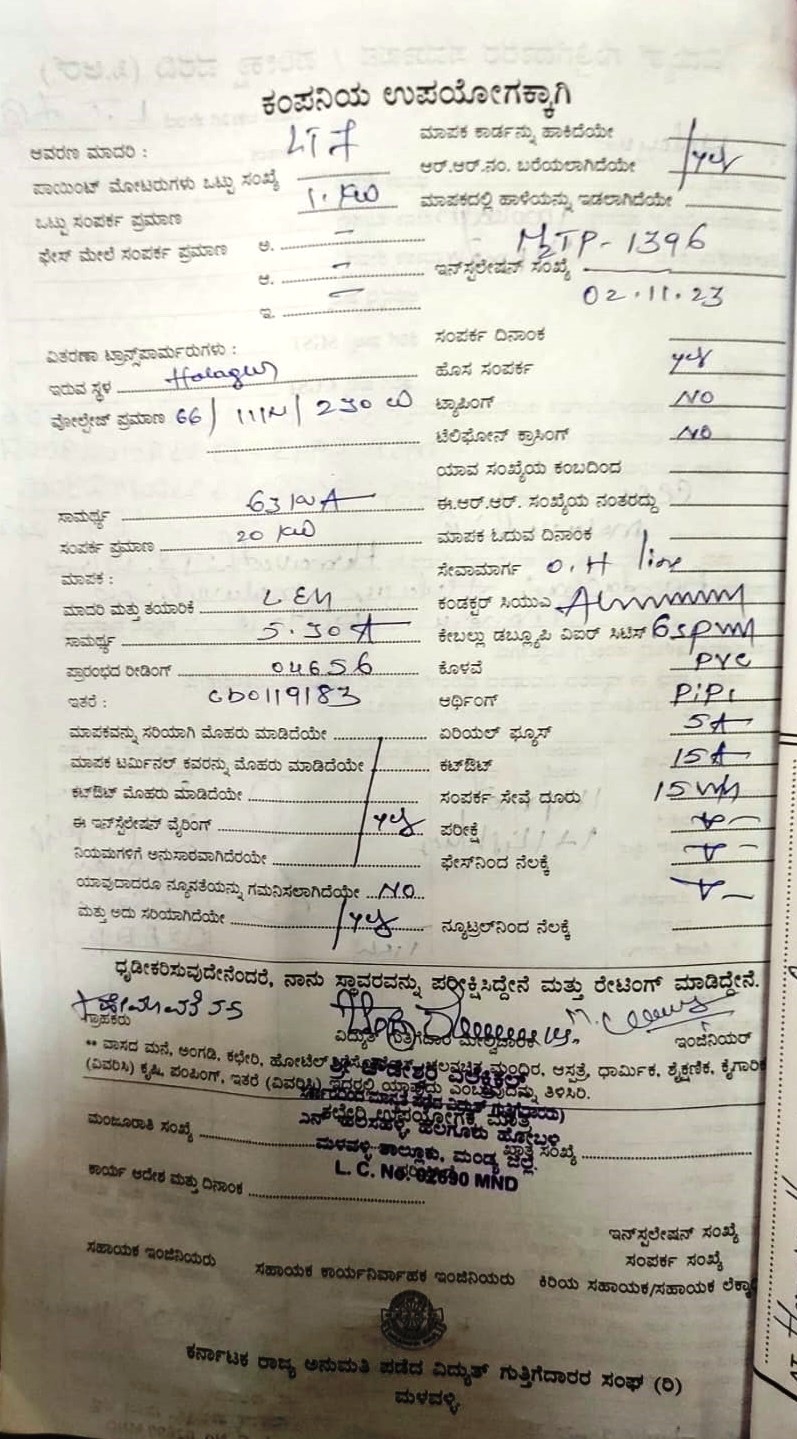 ಕಂಪನಿಯ ಉಪಯೋಗಕ್ಕಾಗಿ
ಆವರಣ ಮಾದರಿ :
ಪಾಯಿಂಟ್ ಮೋಟರುಗಳು ಒಟ್ಟು ಸಂಖ್ಯೆ
ಒಟ್ಟು ಸಂಪರ್ಕ ಪ್ರಮಾಣ 1. KW
ಫೇಸ್ ಮೇಲೆ ಸಂಪರ್ಕ ಪ್ರಮಾಣ ಅ. –
ಆ. –
ಇ. –
ವಿತರಣಾ ಟ್ರಾನ್ಸ್‌ಪಾರ್ಮರುಗಳು :
ಇರುವ ಸ್ಥಳ
ವೋಲ್ಟೇಜ್ ಪ್ರಮಾಣ 66/ 230
ಸಾಮರ್ಥ್ಯ 63 KVA
ಸಂಪರ್ಕ ಪ್ರಮಾಣ 20 KW
ಮಾಪಕ :
ಮಾದರಿ ಮತ್ತು ತಯಾರಿಕೆ
ಸಾಮರ್ಥ್ಯ 5.30A
ಪ್ರಾರಂಭದ ರೀಡಿಂಗ್ 04656
ಇತರೆ : CD0119183
ಮಾಪಕವನ್ನು ಸರಿಯಾಗಿ ಮೊಹರು ಮಾಡಿದೆಯೇ
ಮಾಪಕ ಟರ್ಮಿನಲ್ ಕವರನ್ನು ಮೊಹರು ಮಾಡಿದೆಯೇ
ಕಟ್‌ಔಟ್ ಮೊಹರು ಮಾಡಿದೆಯೇ
ಈ ಇನ್‌ಸ್ಟಲೇಷನ್ ವೈರಿಂಗ್ yes
ನಿಯಮಗಳಿಗೆ ಅನುಸಾರವಾಗಿದೆರಯೇ
ಯಾವುದಾದರೂ ನ್ಯೂನತೆಯನ್ನು ಗಮನಿಸಲಾಗಿದೆಯೇ NO
ಮತ್ತು ಅದು ಸರಿಯಾಗಿದೆಯೇ yes
ಮಾಪಕ ಕಾರ್ಡನ್ನು ಹಾಕಿದೆಯೇ
ಆರ್.ಆರ್.ನಂ. ಬರೆಯಲಾಗಿದೆಯೇ yes
ಮಾಪಕದಲ್ಲಿ ಹಾಳೆಯನ್ನು ಇಡಲಾಗಿದೆಯೇ
M2TP-1396
ಇನ್‌ಸ್ಟಲೇಷನ್ ಸಂಖ್ಯೆ
02.11.23
ಸಂಪರ್ಕ ದಿನಾಂಕ
ಹೊಸ ಸಂಪರ್ಕ yes
ಟ್ಯಾಪಿಂಗ್ NO
ಟೆಲಿಫೋನ್ ಕ್ರಾಸಿಂಗ್ NO
ಯಾವ ಸಂಖ್ಯೆಯ ಕಂಬದಿಂದ
ಈ.ಆರ್.ಆರ್. ಸಂಖ್ಯೆಯ ನಂತರದ್ದು
ಮಾಪಕ ಓದುವ ದಿನಾಂಕ
ಸೇವಾಮಾರ್ಗ O.H line
ಕಂಡಕ್ಟರ್ ಸಿಯುಎ
ಕೇಬಲ್ಲು ಡಬ್ಲ್ಯೂಪಿ ವಿಐರ್ ಸಿಟಿಸ್
ಕೊಳವೆ PVC
ಆರ್ಥಿಂಗ್
ಏರಿಯಲ್ ಫ್ಯೂಸ್ 5A
ಕಟ್‌ಔಟ್ 15A
ಸಂಪರ್ಕ ಸೇವೆ ದೂರು
ಪರೀಕ್ಷೆ
ಫೇಸ್‌ನಿಂದ ನೆಲಕ್ಕೆ
ನ್ಯೂಟ್ರಲ್‌ನಿಂದ ನೆಲಕ್ಕೆ
ಧೃಡೀಕರಿಸುವುದೇನೆಂದರೆ, ನಾನು ಸ್ಥಾವರವನ್ನು ಪರೀಕ್ಷಿಸಿದ್ದೇನೆ ಮತ್ತು ರೇಟಿಂಗ್ ಮಾಡಿದ್ದೇನೆ.
ಗ್ರಾಹಕರು ವಿದ್ಯುತ್ ಗುತ್ತಿಗೆದಾರ ಮೇಲ್ವಿಚಾರಕ ಇಂಜಿನಿಯರ್
** ವಾಸದ ಮನೆ, ಅಂಗಡಿ, ಕಛೇರಿ, ಹೋಟೆಲ್ ಮಂದಿರ, ಆಸ್ಪತ್ರೆ, ಧಾರ್ಮಿಕ, ಶೈಕ್ಷಣಿಕ, ಕೈಗಾರಿಕ
(ವಿವರಿಸಿ) ಕೃಷಿ, ಪಂಪಿಂಗ್, ಇತರೆ (ವಿವರಿಸಿ) ಇದರಲ್ಲಿ ಯಾವುದು ಎಂಬುವುದನ್ನು ತಿಳಿಸಿರಿ.
ಕಛೇರಿ ಉಪಯೋಗಕ್ಕೆ ಮಾತ್ರ
ಮಂಜೂರಾತಿ ಸಂಖ್ಯೆ ಖಾತೆ ಸಂಖ್ಯೆ
ಮಳವಳ್ಳಿ ತಾಲ್ಲೂಕು, ಮಂಡ್ಯ ಜಿಲ್ಲೆ.
L. C. No. 02690 MND
ಕಾರ್ಯ ಆದೇಶ ಮತ್ತು ದಿನಾಂಕ
ಇನ್‌ಸ್ಟಲೇಷನ್ ಸಂಖ್ಯೆ
ಸಂಪರ್ಕ ಸಂಖ್ಯೆ
ಸಹಾಯಕ ಇಂಜಿನಿಯರು ಸಹಾಯಕ ಕಾರ್ಯನಿರ್ವಾಹಕ ಇಂಜಿನಿಯರು ಕಿರಿಯ ಸಹಾಯಕ/ಸಹಾಯಕ
ಕರ್ನಾಟಕ ರಾಜ್ಯ ಅನುಮತಿ ಪಡೆದ ವಿದ್ಯುತ್ ಗುತ್ತಿಗೆದಾರರ ಸಂಘ (ರಿ)
ಮಳವಳ್ಳಿ.